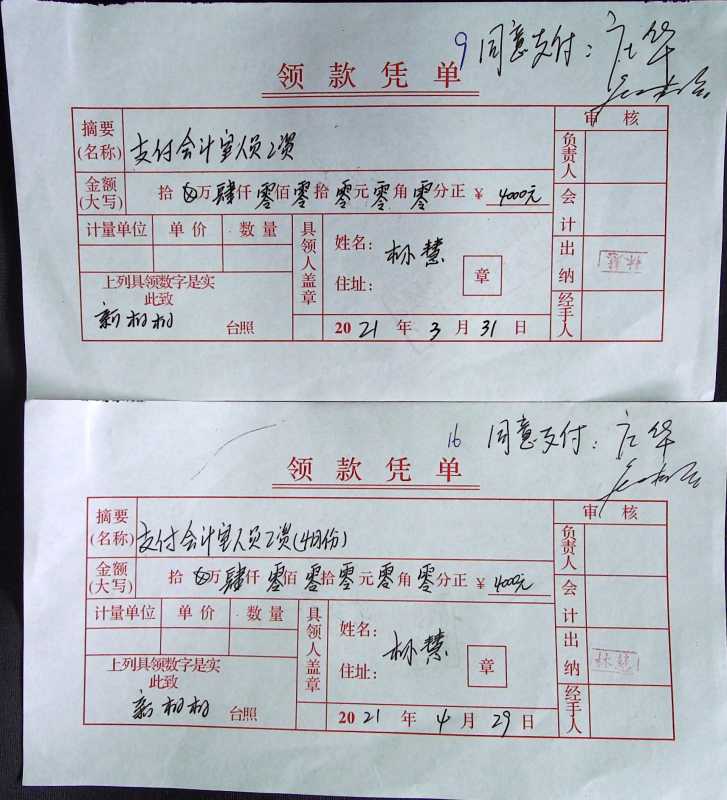 9 同意支付：庄华
领款凭单
摘要(名称) 支付会计室人员工资
审核
负责人
金额(大写) 拾 万肆仟零佰零拾零元零角零分正 ¥ 4000元
会计
计量单位 单价 数量
具领人盖章
姓名： 林慧
住址：
章
出纳 林慧
上列具领数字是实
此致
新村村 台照
2021年3月31日
经手人
16 同意支付：庄华
领款凭单
摘要(名称) 支付会计室人员工资(4月份)
审核
负责人
金额(大写) 拾 万肆仟零佰零拾零元零角零分正 ¥ 4000元
会计
计量单位 单价 数量
具领人盖章
姓名： 林慧
住址：
章
出纳 林慧
上列具领数字是实
此致
新村村 台照
2021年4月29日
经手人